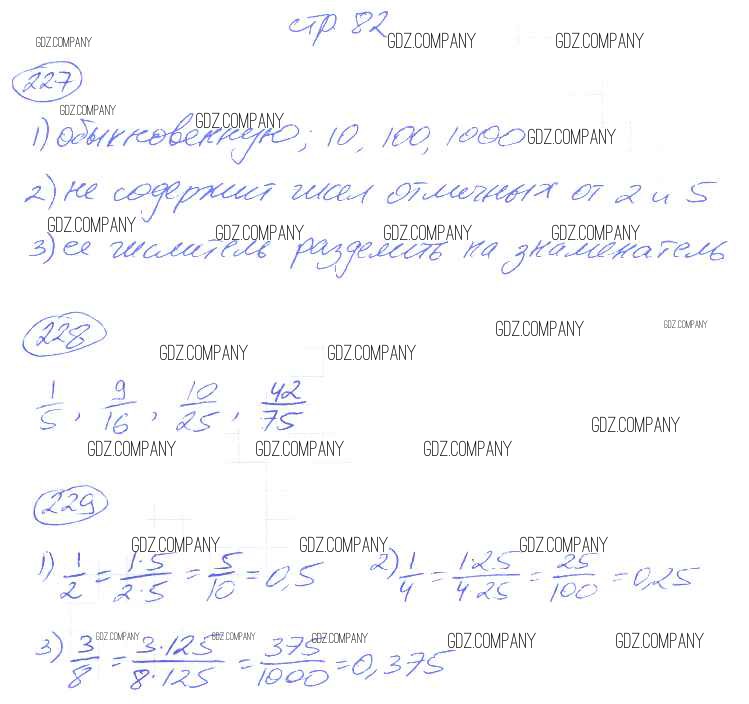 стр. 82
GDZ.COMPANY GDZ.COMPANY GDZ.COMPANY
227
GDZ.COMPANY GDZ.COMPANY
1) обыкновенную; 10, 100, 1000 GDZ.COMPANY
2) не содержит чисел отличных от 2 и 5
GDZ.COMPANY GDZ.COMPANY GDZ.COMPANY GDZ.COMPANY
3) ее числитель разделить на знаменатель
228
GDZ.COMPANY GDZ.COMPANY
GDZ.COMPANY GDZ.COMPANY
1/5, 9/16, 10/25, 42/75
GDZ.COMPANY
GDZ.COMPANY GDZ.COMPANY GDZ.COMPANY
229
GDZ.COMPANY GDZ.COMPANY GDZ.COMPANY
1) 1/2 = 1·5/2·5 = 5/10 = 0,5 2) 1/4 = 1·25/4·25 = 25/100 = 0,25
GDZ.COMPANY GDZ.COMPANY GDZ.COMPANY GDZ.COMPANY GDZ.COMPANY
3) 3/8 = 3·125/8·125 = 375/1000 = 0,375